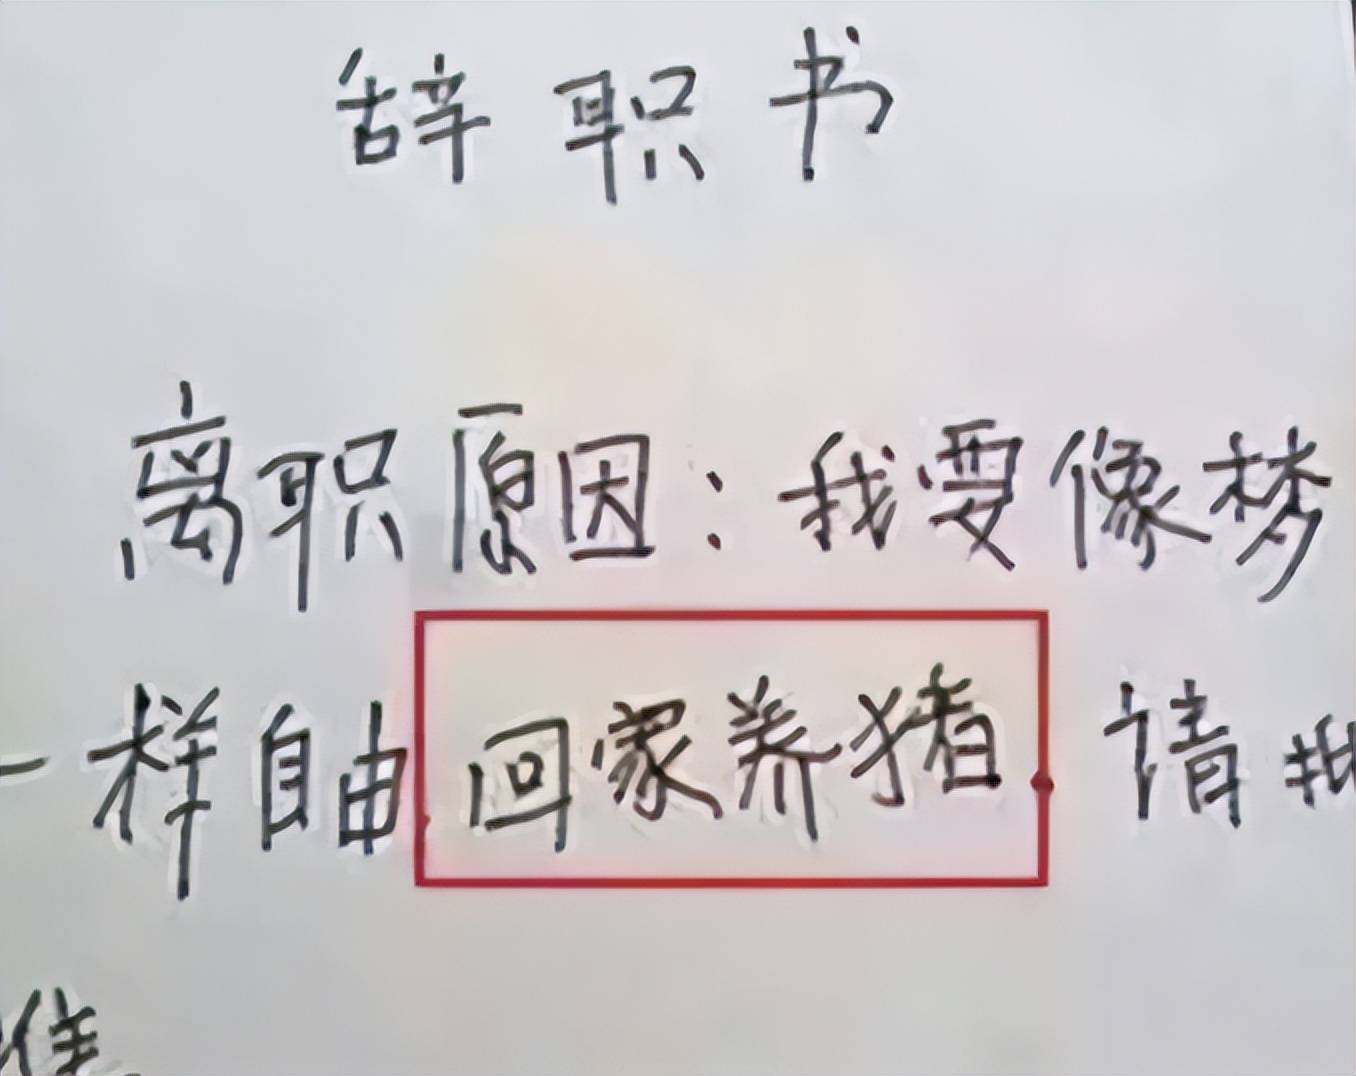 辞职书
离职原因：我要像梦
一样自由回家养猪 请批
准